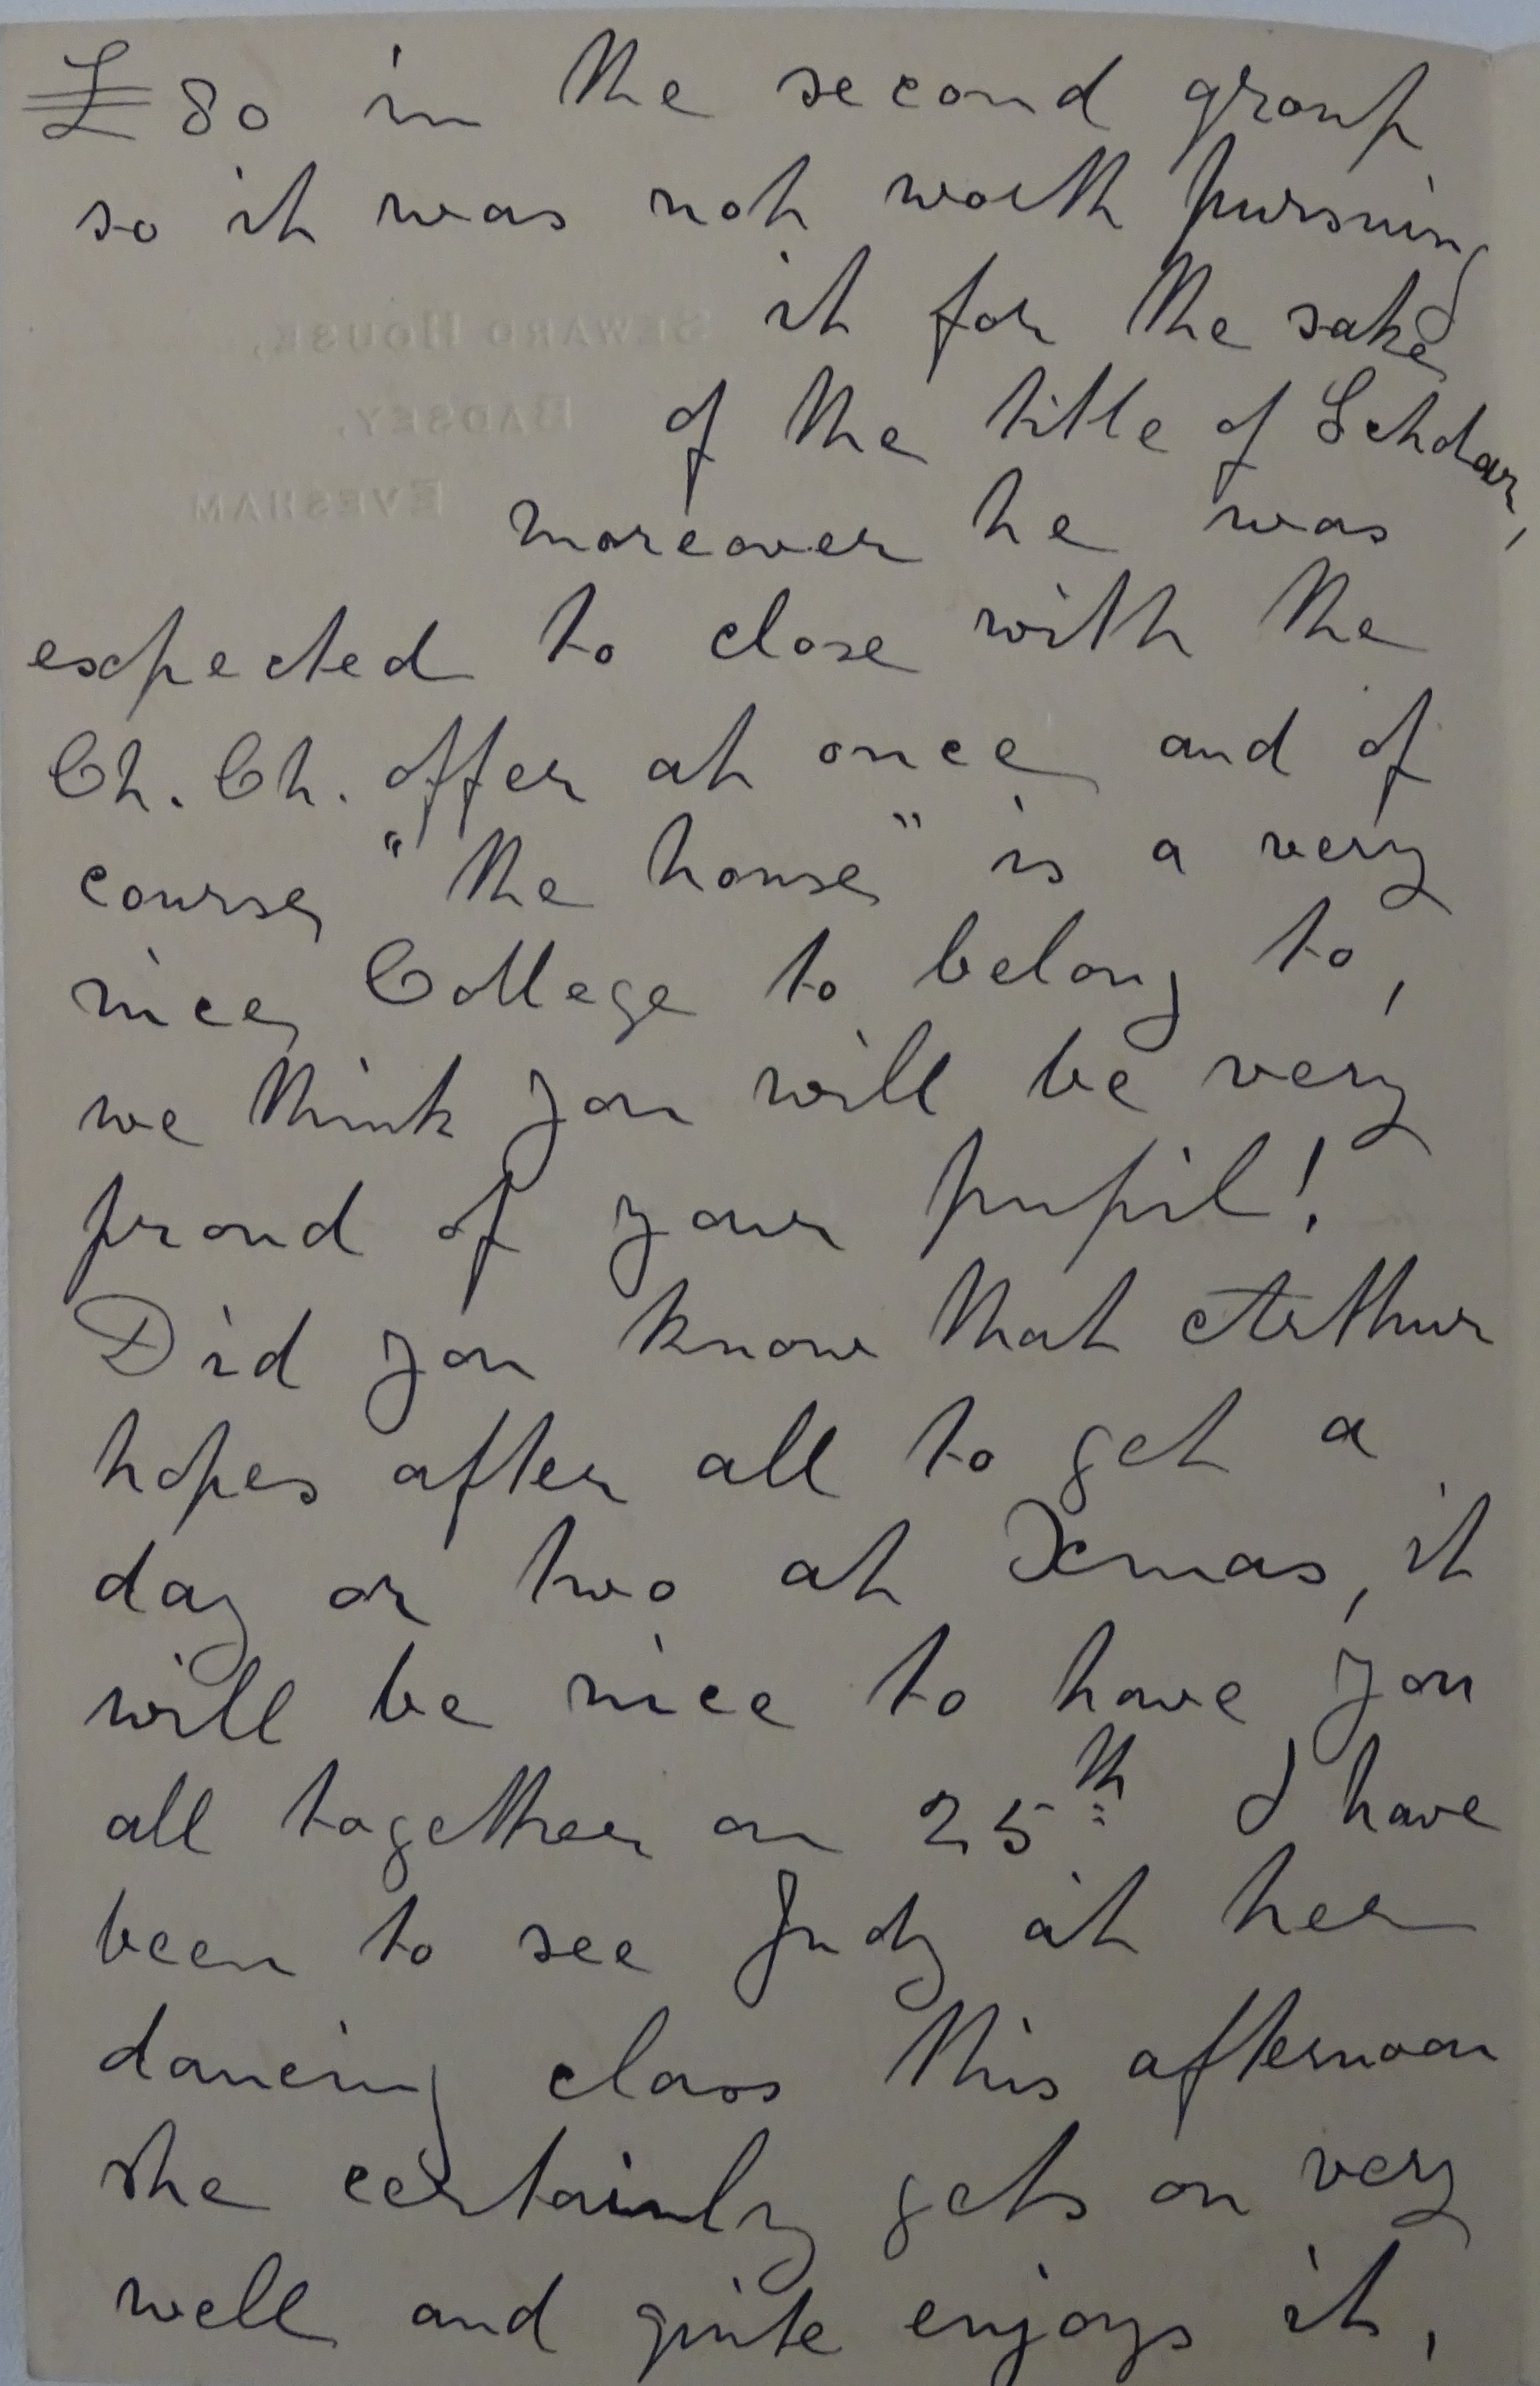 £80 in the second group
so it was not worth pursuing
it for the sake
SEWARD HOUSE,
of the title of Scholar,
BADSEY,
moreover he was
EVESHAM
expected to close with the
Ch. Ch. offer at once and of
course "the house" is a very
nice College to belong to,
we think you will be very
proud of your pupil!
Did you know that Arthur
hopes after all to get a
day or two at Xmas, it
will be nice to have you
all together on 25th I have
been to see Judy at her
dancing class this afternoon
she certainly gets on very
well and quite enjoys it,